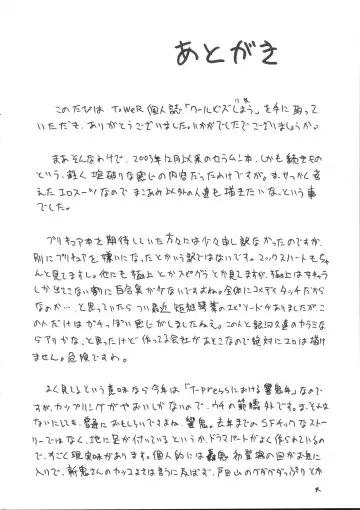 あとがき
このたびは ToWeR 個人誌「クールビズしよう」を手に取って
いただき、ありがとうございました。いかがでしたでございましょうか。
まあそんなわけで、2003年12月以来のセラムン本、しかも続きもの
という、軽く掟破りな感じの内容だったわけですが。ま、せっかく考
えたエロスーツなので まこあみ以外の人達も描きたいな、という事
でした。
プリキュア本を期待していた方々には少々申し訳なかったのですが、
別にプリキュアを嫌いになったとかいう訳ではないです。マックスハートもちゃ
んと見てますし。他にも極上とかスピグラとか見てますが、極上はキャラ
しか出てこない割に百合素が少ないですよね。全体にコメディタッチだから
なのか…と思っていたら つい最近 矩継琴葉のエピソードがありましたが、こ
の人だけはガチっぽい感じがしましたねえ。この人と銀河久遠のカラミな
らアリかな、と思ったけど 作ってる会社があとこなので絶対にエロは描け
ません。危険ですわ。
よく見てるという意味なら今年は「T-pressにおける響鬼年」なので
すが、カップリングがやおいしかないので、ウチの範疇外です。ま、それは
ないにしても、普通におもしろいですよね、響鬼。去年までのSFチックなストー
リーではなく、地に足が付いている というか、ドラマパートがよく作られているの
で、すごく現実味があります。個人的には轟鬼 布登場の回がお気に
入りで、斬鬼さんのカッコよさは言うに及ばず、戸田山のグダグダっぷりとか